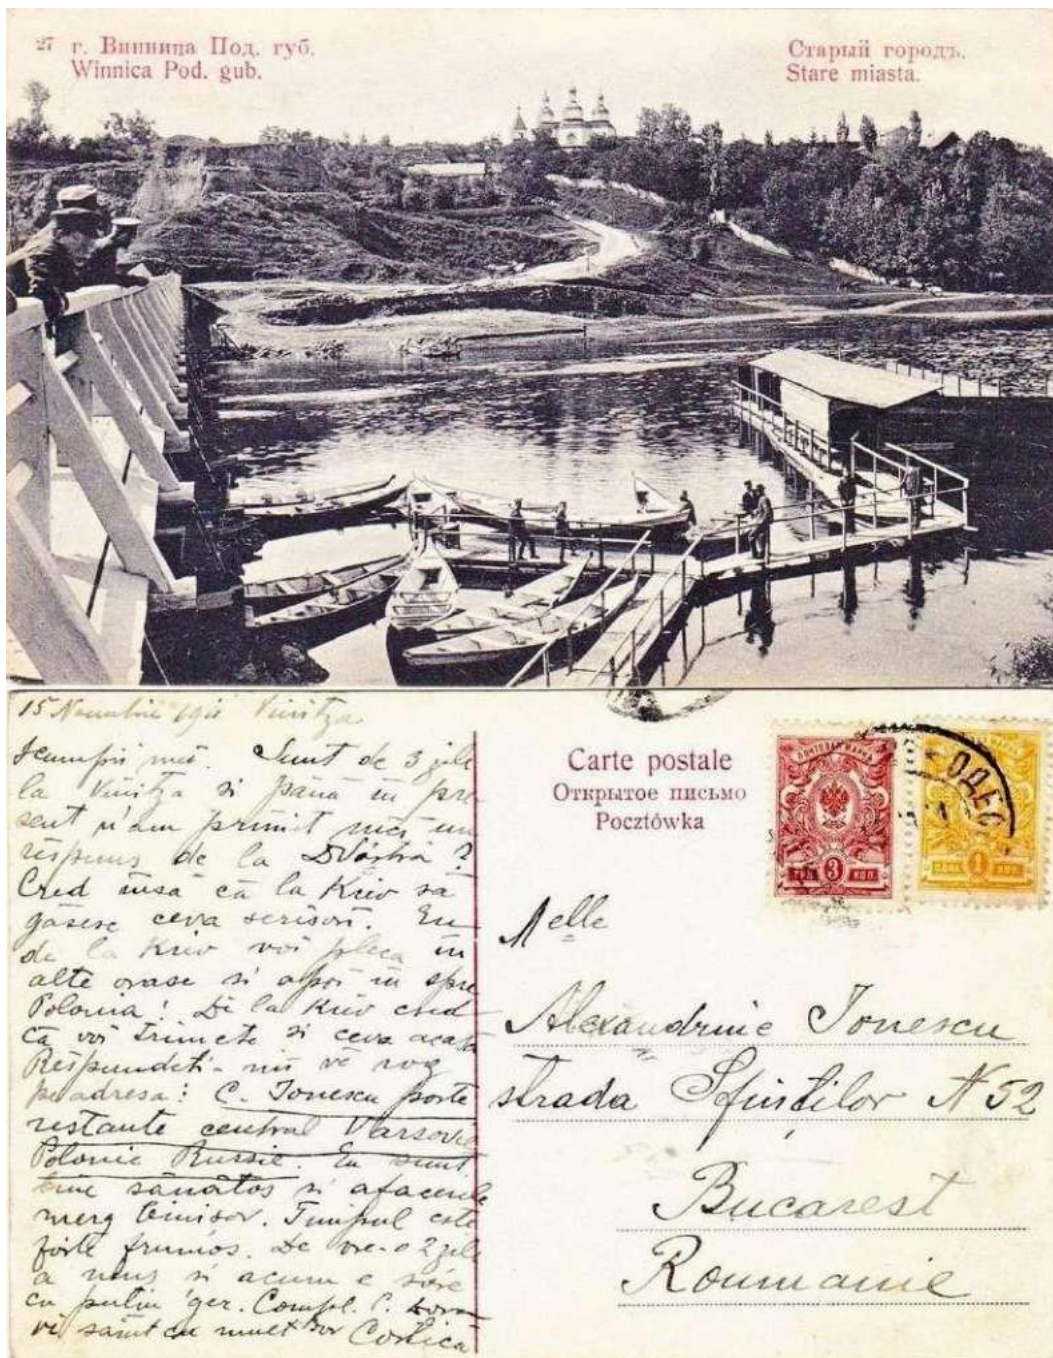 27 г. Винница Под. губ.
Winnica Pod. gub.
Старый городъ.
Stare miasta.
15 Noembrie Vinitza
scumpii mei. Sunt de 3 zile
la Vinitza si pănă in pre
sent n'am primit nici un
respuns de la DVóstră ?
Cred insă că la Kiev să
găsesc ceva scrisori. Eu
de la Kiev voi pleca in
alte orase si apoi in spre
Polonia! De la Kiev cred
că voi trimete si ceva acasă
Respundeti-mi vĕ rog
pe adresa: C. Ionescu poste
restante central Varsovie
Polonie Russie. Eu sunt
bine sănătos si afacerile
merg binisor. Timpul este
fórte frumos. De vre-o 2 zile
a nins si acum e sóre
cu putin ger. Compl.
vĕ sărut cu mult dor Costica
Carte postale
Открытое письмо
Pocztówka
ПОЧТОВАЯ МАРКА
3 КОП
1
ОДЕС
Melle
Alexandrine Ionescu
strada Sfinților N 52
Bucarest
Roumanie